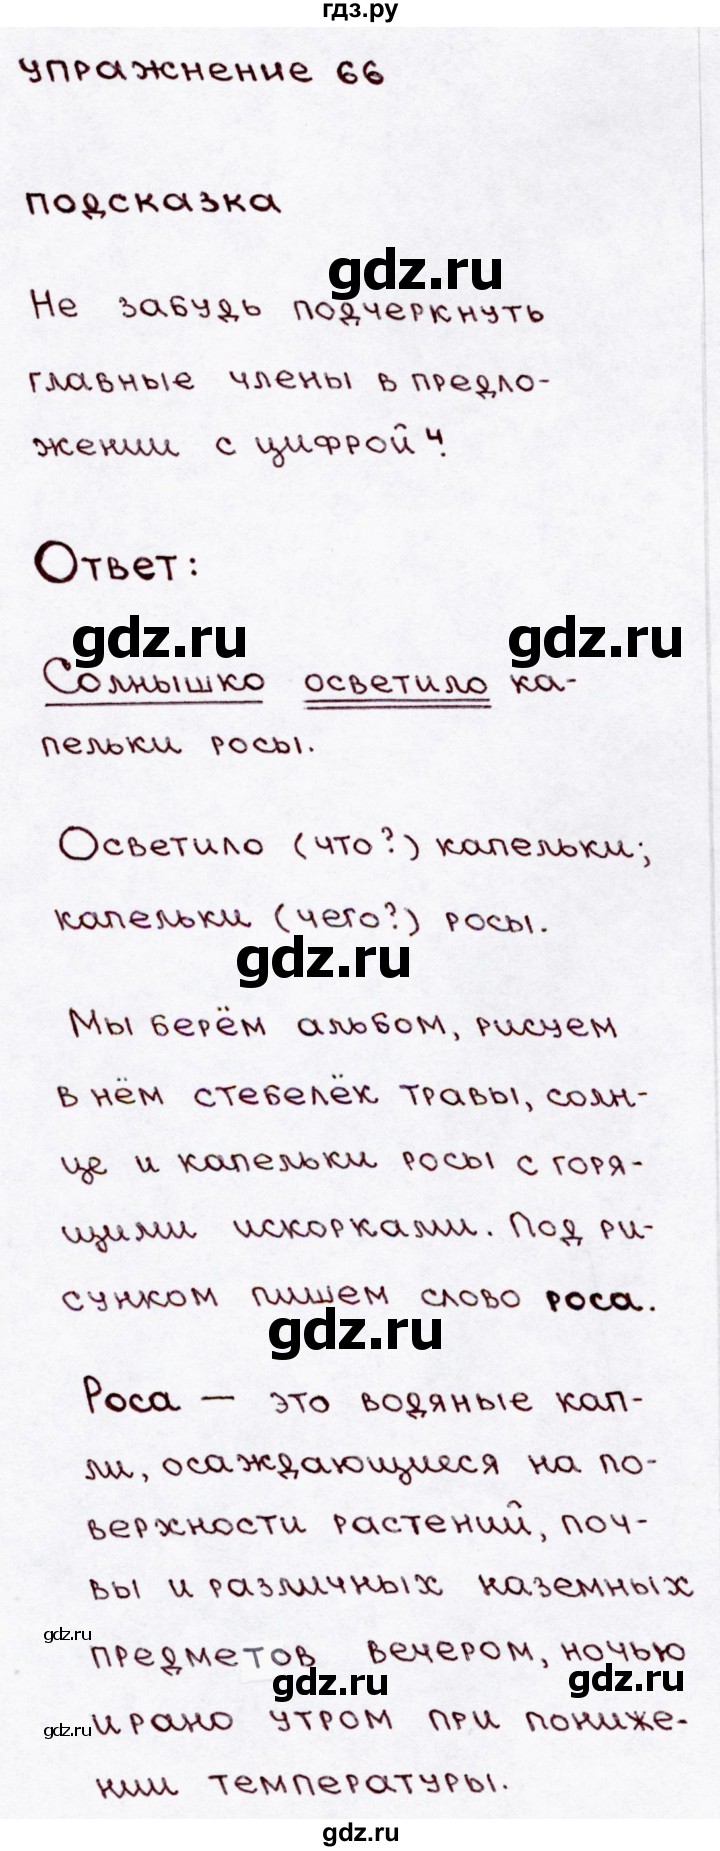 гдз.ру
упражнение 66
подсказка
gdz.ru
Не забудь подчеркнуть
главные члены в предло-
жении с цифрой 4.
Ответ:
gdz.ru gdz.ru
Солнышко осветило ка-
пельки росы.
Осветило (что?) капельки;
капельки (чего?) росы.
gdz.ru
Мы берём альбом, рисуем
в нём стебелёк травы, солн-
це и капельки росы с горя-
щими искорками. Под ри-
сунком пишем слово роса.
gdz.ru
Роса — это водяные кап-
ли, осаждающиеся на по-
верхности растений, поч-
вы и различных наземных
gdz.ru
предметов вечером, ночью
gdz.ru gdz.ru
gdz.ru
и рано утром при пониже-
нии температуры.
gdz.ru